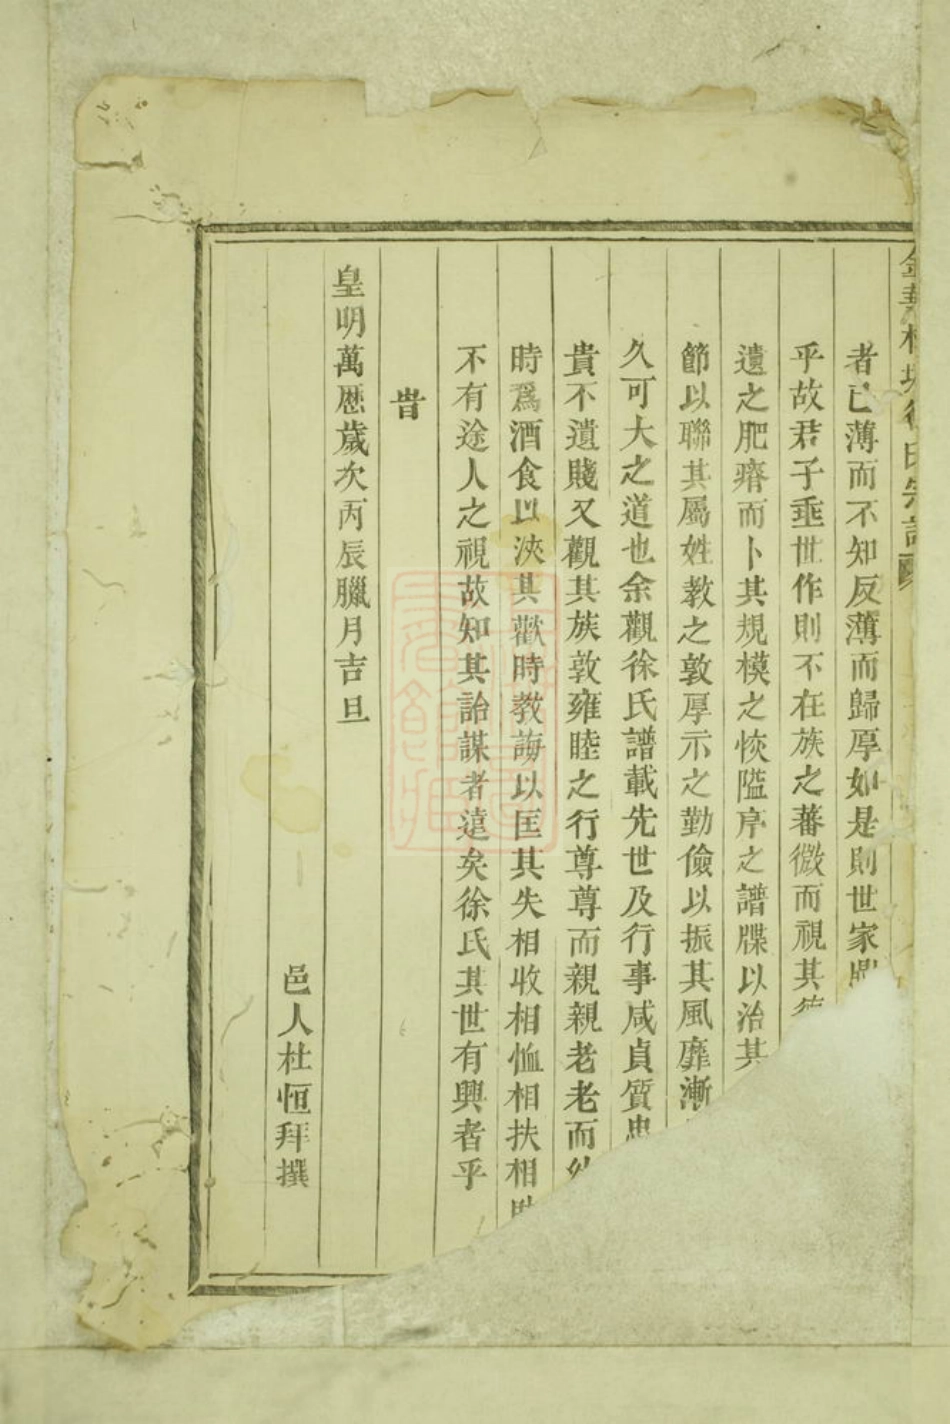 者已薄而不知反薄而歸厚如是則世家
乎故君子垂世作則不在族之蕃微而視其德
遺之肥瘠而卜其規模之恢隘序之譜牒以治其
節以聯其屬姓教之敦厚示之勤儉以振其風靡漸
久可大之道也余觀徐氏譜載先世及行事咸貞質忠
貴不遺賤又觀其族敦雍睦之行尊尊而親親老老而幼
時爲酒食以浹其歡時教誨以匡其失相收相恤相扶相助
不有途人之視故知其詒謀者遠矣徐氏其世有興者乎
旹
皇明萬歷歲次丙辰臘月吉旦
邑人杜恒拜撰